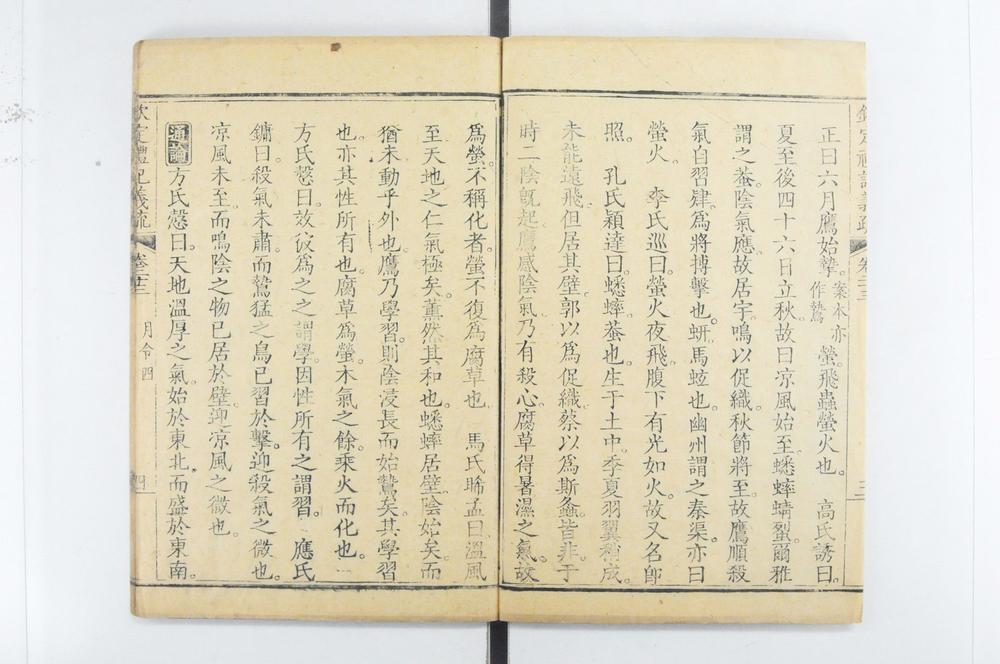 正曰六月鷹始摯。案本亦作鷙 螢飛蟲螢火也。 高氏誘曰。
夏至後四十六日立秋。故曰涼風始至。蟋蟀蜻蛚。爾雅
謂之蛬。陰氣應。故居宇鳴以促織。秋節將至。故鷹順殺
氣自習肄。爲將搏擊也。蚈馬蚿也。幽州謂之秦渠。亦曰
螢火。 季氏巡曰。螢火夜飛。腹下有光如火。故又名卽
照。 孔氏穎達曰。蟋蟀蛬也。生于土中。季夏羽翼稍成。
未能遠飛。但居其壁。郭以爲促織。蔡以爲斯螽。皆非。于
時二陰旣起。鷹感陰氣。乃有殺心。腐草得暑濕之氣。故
欽定禮記義疏 卷二十三 月令四 四
爲螢。不稱化者。螢不復爲腐草也。 馬氏睎孟曰。溫風
至。天地之仁氣極矣。薰然其和也。蟋蟀居壁。陰始矣。而
猶未動乎外也。鷹乃學習。則陰浸長而始鷙矣。其學習
也。亦其性所有也。腐草爲螢。木氣之餘。乘火而化也。
方氏慤曰。效彼爲之之謂學。因性所有之謂習。 應氏
鏞曰。殺氣未肅。而鷙猛之鳥已習於擊。迎殺氣之微也。
凉風未至。而鳴陰之物已居於壁。迎凉風之微也。
通論 方氏慤曰。天地溫厚之氣。始於東北。而盛於東南。